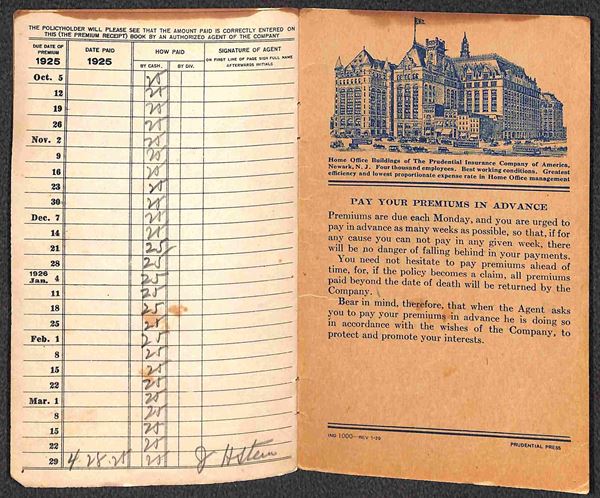 THE POLICYHOLDER WILL PLEASE SEE THAT THE AMOUNT PAID IS CORRECTLY ENTERED ON
THIS (THE PREMIUM RECEIPT) BOOK BY AN AUTHORIZED AGENT OF THE COMPANY
DUE DATE OF PREMIUM 1925
DATE PAID 1925
HOW PAID
BY CASH. BY DIV.
SIGNATURE OF AGENT
ON FIRST LINE OF PAGE SIGN FULL NAME
AFTERWARDS INITIALS
Oct. 5 25
12 25
19 25
26 25
Nov. 2 25
9 25
16 25
23 25
30 25
Dec. 7 25
14 25
21 25
28 25
1926
Jan. 4 25
11 25
18 25
25 25
Feb. 1 25
8 25
15 25
22 25
Mar. 1 25
8 25
15 25
22 25
29 4.28.25 25 J HStern
Home Office Buildings of The Prudential Insurance Company of America,
Newark, N. J. Four thousand employees. Best working conditions. Greatest
efficiency and lowest proportionate expense rate in Home Office management
PAY YOUR PREMIUMS IN ADVANCE
Premiums are due each Monday, and you are urged to
pay in advance as many weeks as possible, so that, if for
any cause you can not pay in any given week, there
will be no danger of falling behind in your payments.
You need not hesitate to pay premiums ahead of
time, for, if the policy becomes a claim, all premiums
paid beyond the date of death will be returned by the
Company.
Bear in mind, therefore, that when the Agent asks
you to pay your premiums in advance he is doing so
in accordance with the wishes of the Company, to
protect and promote your interests.
IND 1000—REV 1-20
PRUDENTIAL PRESS